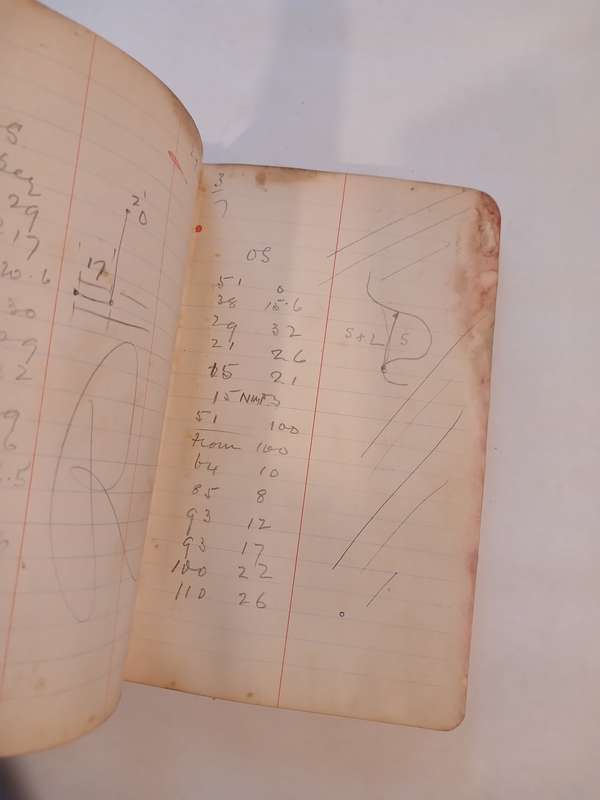 S
29
17
20.6
30
29
22
2'
0
17'
3
7
OS
51 0
38 15.6
29 32
21 26
15 21
15
51 100
From 100
64 10
85 8
93 12
93 17
100 22
110 26
S